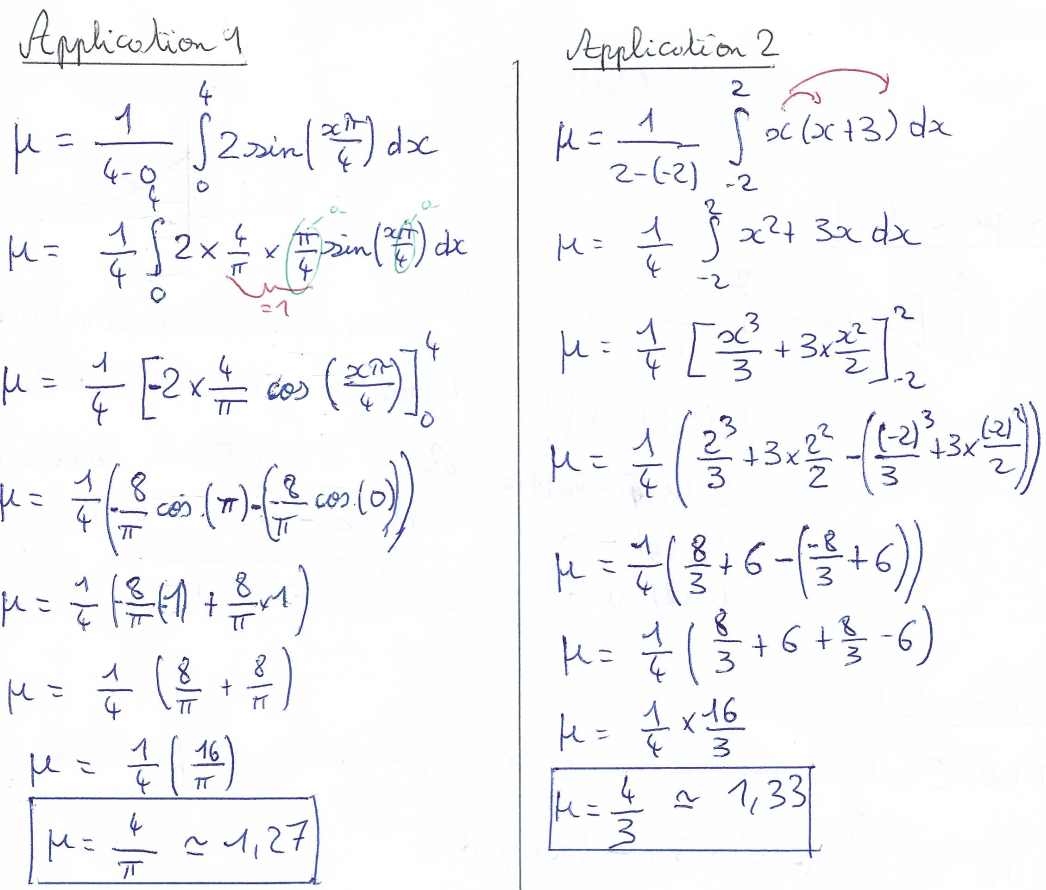 Application 1
μ = 1/(4-0) ∫₀⁴ 2 sin(xπ/4) dx
μ = 1/4 ∫₀⁴ 2 × 4/π × π/4 sin(xπ/4) dx
a a
=1
μ = 1/4 [-2 × 4/π cos (xπ/4)]₀⁴
μ = 1/4 (-8/π cos(π) - (-8/π cos(0)))
μ = 1/4 (-8/π (-1) + 8/π × 1)
μ = 1/4 (8/π + 8/π)
μ = 1/4 (16/π)
μ = 4/π ≃ 1,27
Application 2
μ = 1/(2-(-2)) ∫₋₂² x(x+3) dx
μ = 1/4 ∫₋₂² x² + 3x dx
μ = 1/4 [x³/3 + 3 × x²/2]₋₂²
μ = 1/4 (2³/3 + 3 × 2²/2 - ((-2)³/3 + 3 × (-2)²/2))
μ = 1/4 (8/3 + 6 - (-8/3 + 6))
μ = 1/4 (8/3 + 6 + 8/3 - 6)
μ = 1/4 × 16/3
μ = 4/3 ≃ 1,33